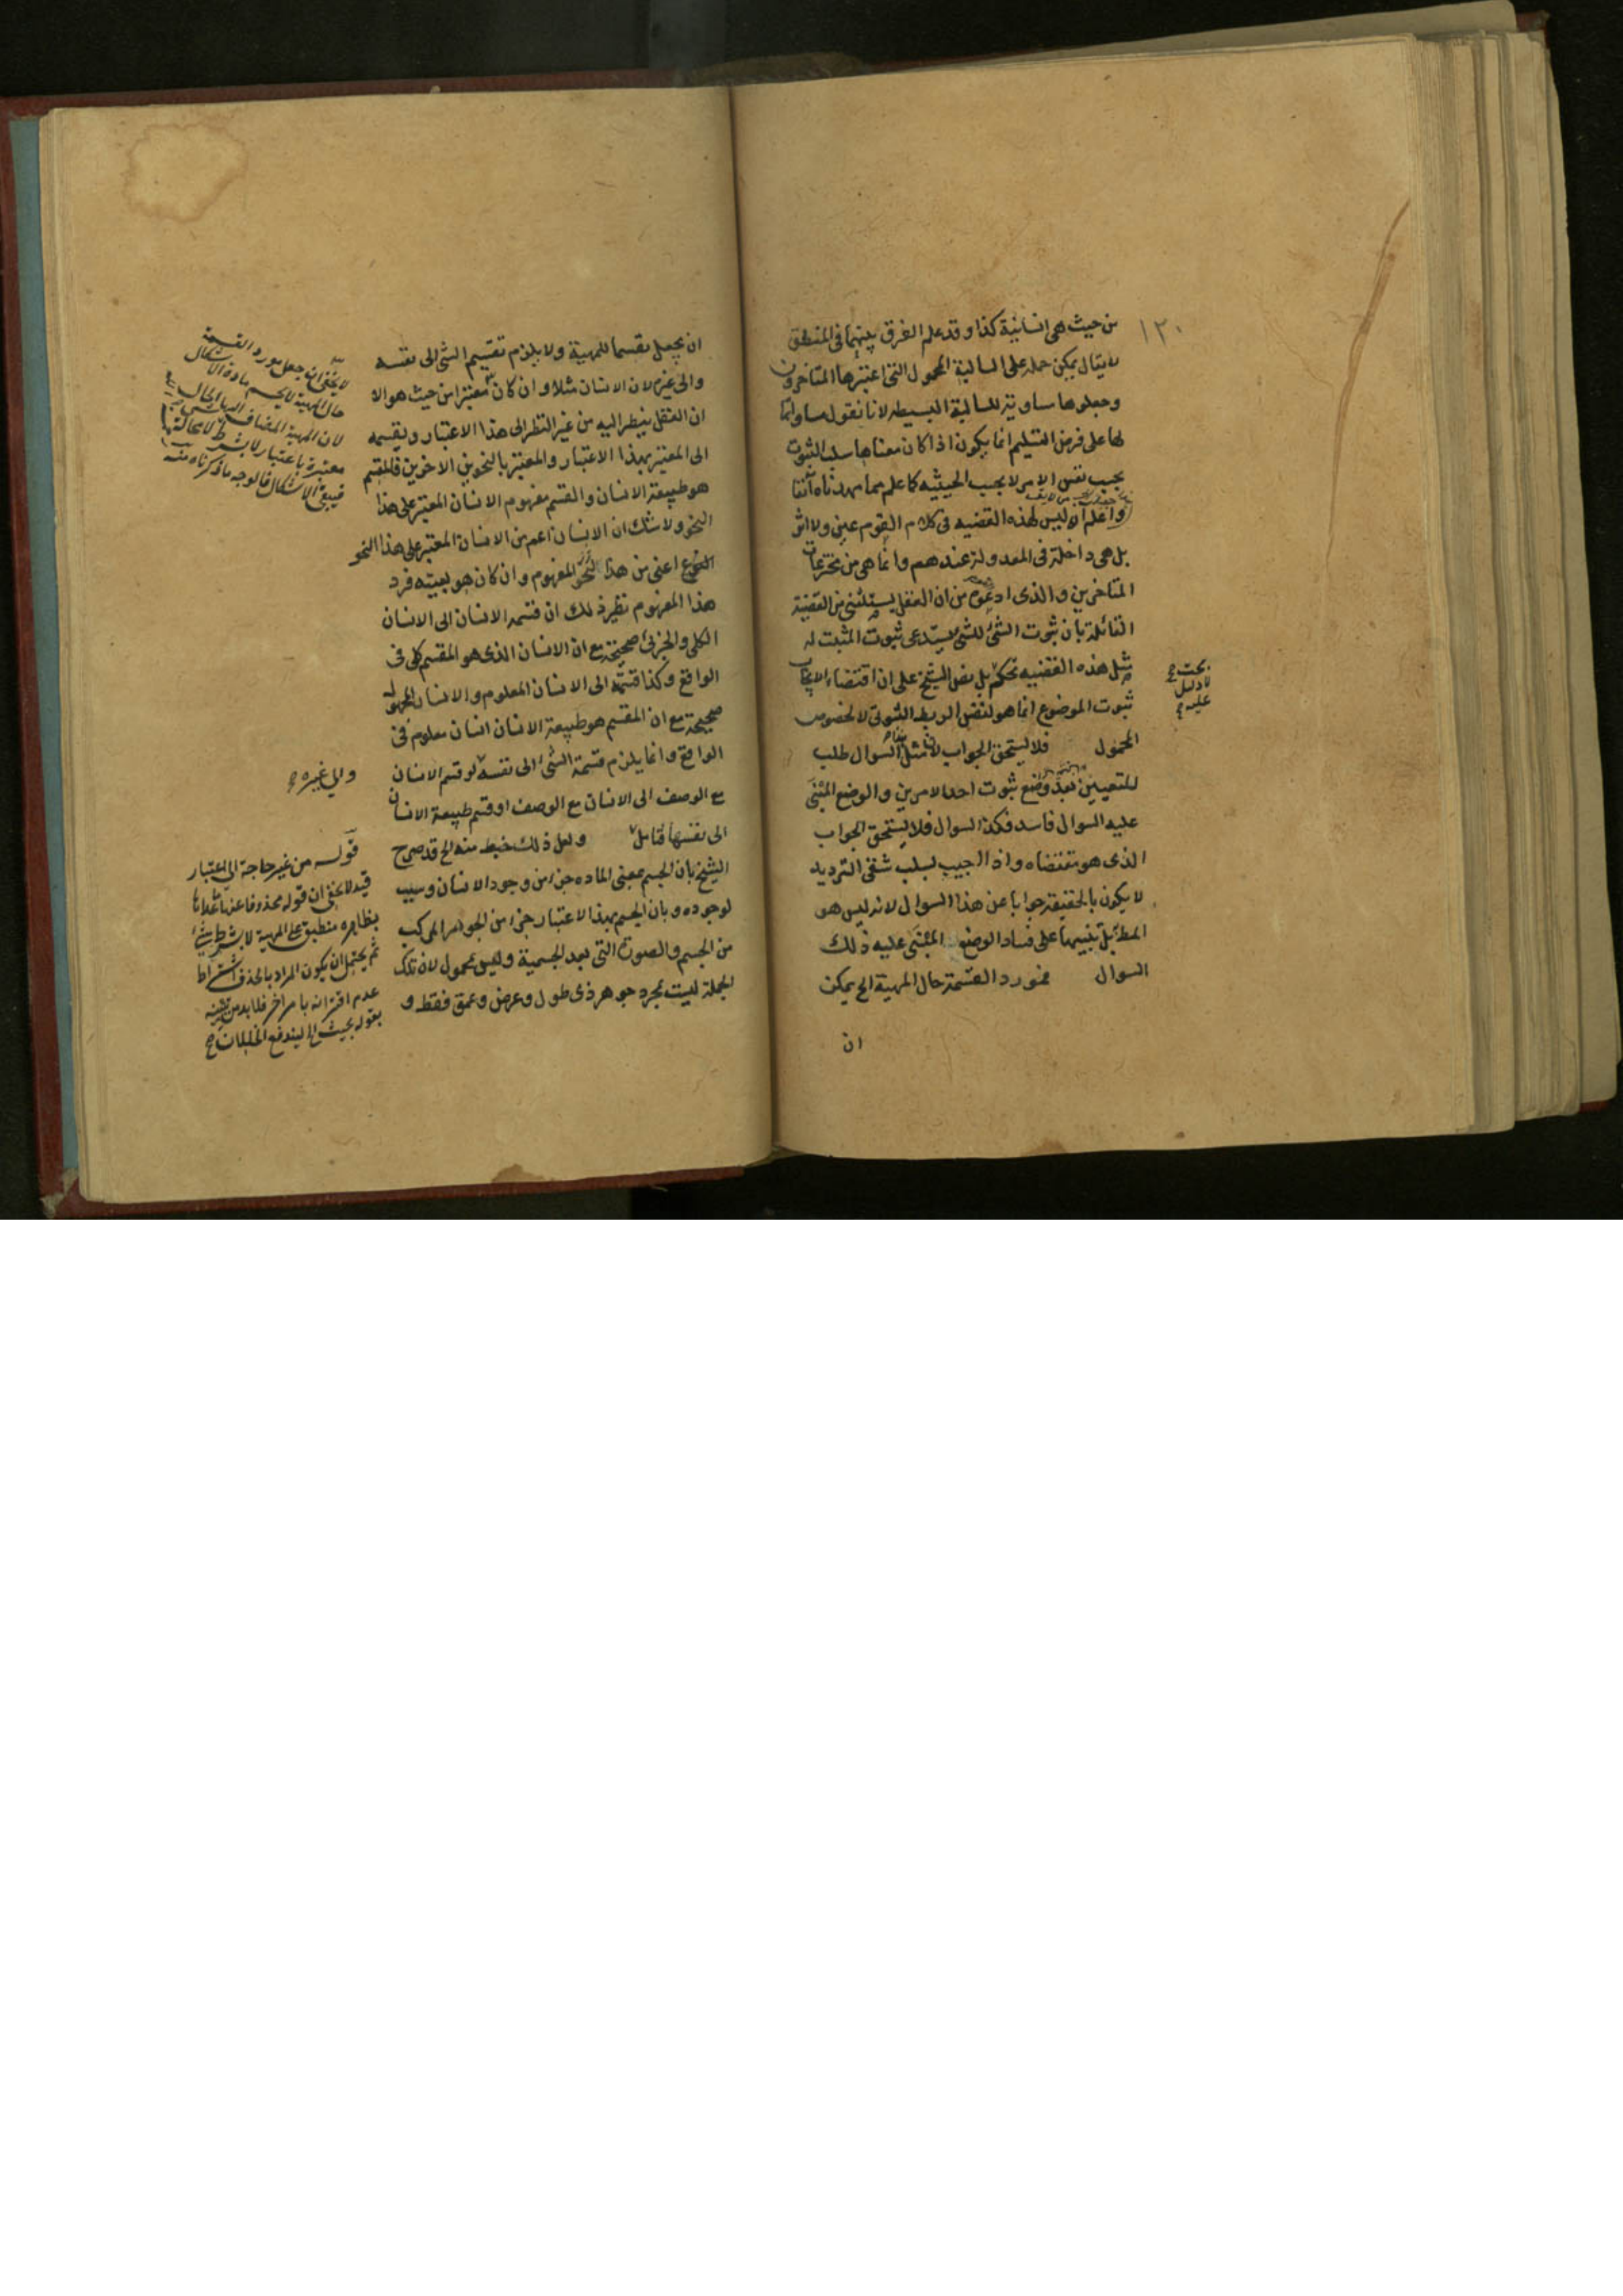 ١٣٠
من حيث هى انسانية كذا وقد علم الفرق بينهما فى المنطق
لا يقال يمكن حمله على السالبة المحمول التى اعتبرها المتاخرون
وجعلوها مساوية للسالبة البسيطه لانا نقول مساواتها
لها على فرض التسليم انما يكون اذا كان معناها سلب الثبوت
بحسب نفس الامر لا بحسب الحيثيه كما علم مما مهدناه آنفا
واعلم انه ليس لهذه القضيه فى كلام القوم عين ولا اثر
بل هى داخلة فى المعدولة عندهم وانما هى من مخترعات
المتاخرين والذى ادعوه من ان العقل يستثنى من القضية
القائلة بان ثبوت الشئ للشئ يستدعى ثبوت المثبت له
مثل هذه القضيه تحكم بل نص الشيخ على ان اقتضاء الايجاب
بحت
لا دليل
عليه
ثبوت الموضوع انما هو لنفس الربط الثبوتى لا لخصوص
المحمول فلا يستحق الجواب لان مثل هذا السوال طلب
للتعيين بعد وضع ثبوت احد الامرين والوضع المبنى
عليه السوال فاسد فكذا السوال فلا يستحق الجواب
الذى هو مقتضاه واذا اجيب بسلب شقى الترديد
لا يكون بالحقيقة جوابا عن هذا السوال لانه ليس هو
المط بل تنبيها على فساد الوضع المبنى عليه ذلك
السوال فمورد القسمة حال المهية الخ يمكن
ان
ان يجعل تقسيما للمهية ولا يلزم تقسيم الشئ الى نفسه
والى غيره لان الانسان مثلا وان كان معتبرا من حيث هو الا
ان العقل ينظر اليه من غير النظر الى هذا الاعتبار ويقسمه
الى المعتبر بهذا الاعتبار والمعتبر بالنحوين الاخرين فالمقسم
هو طبيعة الانسان والقسم مفهوم الانسان المعتبر على هذا
النحو ولا شك ان الانسان اعم من الانسان المعتبر على هذا النحو
اعنى من هذا المفهوم وان كان هو بعينه فرد
هذا المفهوم نظير ذلك ان قسمة الانسان الى الانسان
الكلى والجزئى صحيحة مع ان الانسان الذى هو المقسم كلى فى
الواقع وكذا قسمته الى الانسان المعلوم والانسان المجهول
صحيحة مع ان المقسم هو طبيعة الانسان انسان معلوم فى
الواقع وانما يلزم قسمة الشئ الى نفسه لو قسم الانسان
مع الوصف الى الانسان مع الوصف او قسم طبيعة الانسان
الى نفسها فتامل ولعل ذلك خبط منه الخ قد صرح
الشيخ بان الجسم بمعنى الماده جزء من وجود الانسان وسبب
لوجوده وبان الجسم بهذا الاعتبار جزء من الجوهر المركب
من الجسم والصورة التى بعد الجسمية وليس بمحمول لان تلك
الجملة ليست بمجرد جوهر ذى طول وعرض وعمق فقط و
لا يخفى ان جعل مورد القسمة
حال المهية لا يحسم مادة الاشكال
لان المهية المضاف اليها الحال
معتبرة باعتبار لا بشرط لا محالة
فيبقى الاشكال فالوجه ما ذكرناه منه
والى غيره
قوله من غير حاجة الى اعتبار
قيد لا يخفى ان قوله محذوفا عنها ما عداها
بظاهره منطبق على المهية لا بشرط شئ
ثم يحتمل ان يكون المراد بالحذف اشتراط
عدم اقترانه بامر اخر فلا بد من
بقوله بحيث الخ ليندفع الخللان